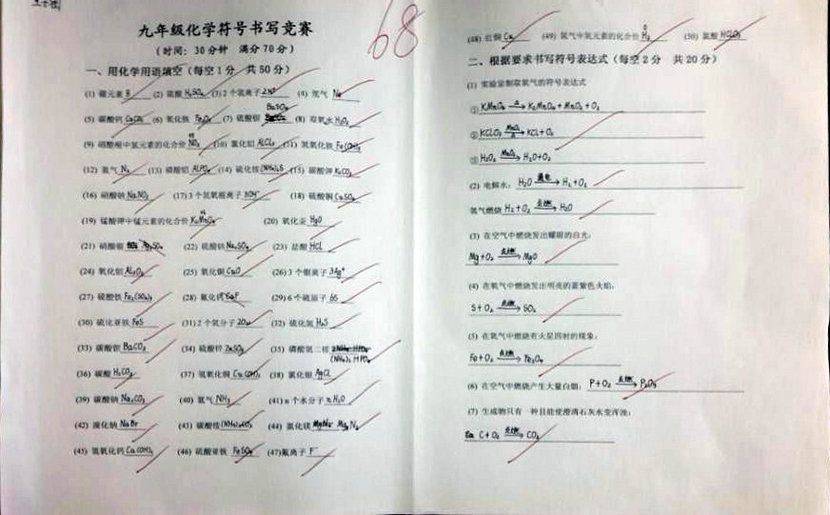 九年级化学符号书写竞赛
68
(时间：30分钟 满分70分)
一、用化学用语填空(每空1分 共50分)
(1) 硼元素 B (2) 硫酸 H₂SO₄ (3) 2个氢离子 2H⁺ (4) 氖气 Ne
(5) 碳酸钙 CaCO₃ (6) 氧化铁 Fe₂O₃ (7) 硫酸钡 BaSO₄ (8) 双氧水 H₂O₂
(9) 硝酸根中氮元素的化合价 NO₃ (10) 氯化铝 AlCl₃ (11) 氢氧化铁 Fe(OH)₃
(12) 氮气 N₂ (13) 磷酸铝 AlPO₄ (14) 硫化铵 (NH₄)₂S (15) 碳酸钾 K₂CO₃
(16) 硝酸钠 NaNO₃ (17) 3个氢氧根离子 3OH⁻ (18) 硫酸铜 CuSO₄
(19) 锰酸钾中锰元素的化合价 K₂MnO₄ (20) 氧化汞 HgO
(21) 硝酸银 (22) 硫酸钠 Na₂SO₄ (23) 盐酸 HCl
(24) 氧化铝 Al₂O₃ (25) 氧化铜 CuO (26) 3个银离子 3Ag⁺
(27) 硫酸铁 Fe₂(SO₄)₃ (28) 氟化钙 CaF (29) 6个硫原子 6S
(30) 硫化亚铁 FeS (31) 2个氧分子 2O₂ (32) 硫化氢 H₂S
(33) 碳酸钡 BaCO₃ (34) 硫酸锌 ZnSO₄ (35) 磷酸氢二铵 (NH₄)₂HPO₄
(36) 碳酸 H₂CO₃ (37) 氢氧化铜 Cu(OH)₂ (38) 氯化银 AgCl
(39) 碳酸钠 Na₂CO₃ (40) 氨气 NH₃ (41) n个水分子 nH₂O
(42) 溴化钠 NaBr (43) 碳酸铵 (NH₄)₂CO₃ (44) 氮化镁 Mg₃N₂
(45) 氢氧化钙 Ca(OH)₂ (46) 硫酸亚铁 FeSO₄ (47) 氟离子 F⁻
(48) 红铜 Cu (49) 氢气中氢元素的化合价 H₂ (50) 氯酸 HClO₃
二、根据要求书写符号表达式(每空2分 共20分)
(1) 实验室制取氧气的符号表达式
① KMnO₄ —△→ K₂MnO₄+MnO₂+O₂
② KClO₃ —MnO₂ △→ KCl+O₂
③ H₂O₂ —MnO₂→ H₂O+O₂
(2) 电解水：H₂O —通电→ H₂+O₂
氢气燃烧 H₂+O₂ —点燃→ H₂O
(3) 在空气中燃烧发出耀眼的白光：
Mg+O₂ —点燃→ MgO
(4) 在氧气中燃烧发出明亮的蓝紫色火焰：
S+O₂ —点燃→ SO₂
(5) 在氧气中燃烧有火星四射的现象：
Fe+O₂ —点燃→ Fe₃O₄
(6) 在空气中燃烧产生大量白烟：P+O₂ —点燃→ P₂O₅
(7) 生成物只有一种且能使澄清石灰水变浑浊：
C+O₂ —点燃→ CO₂